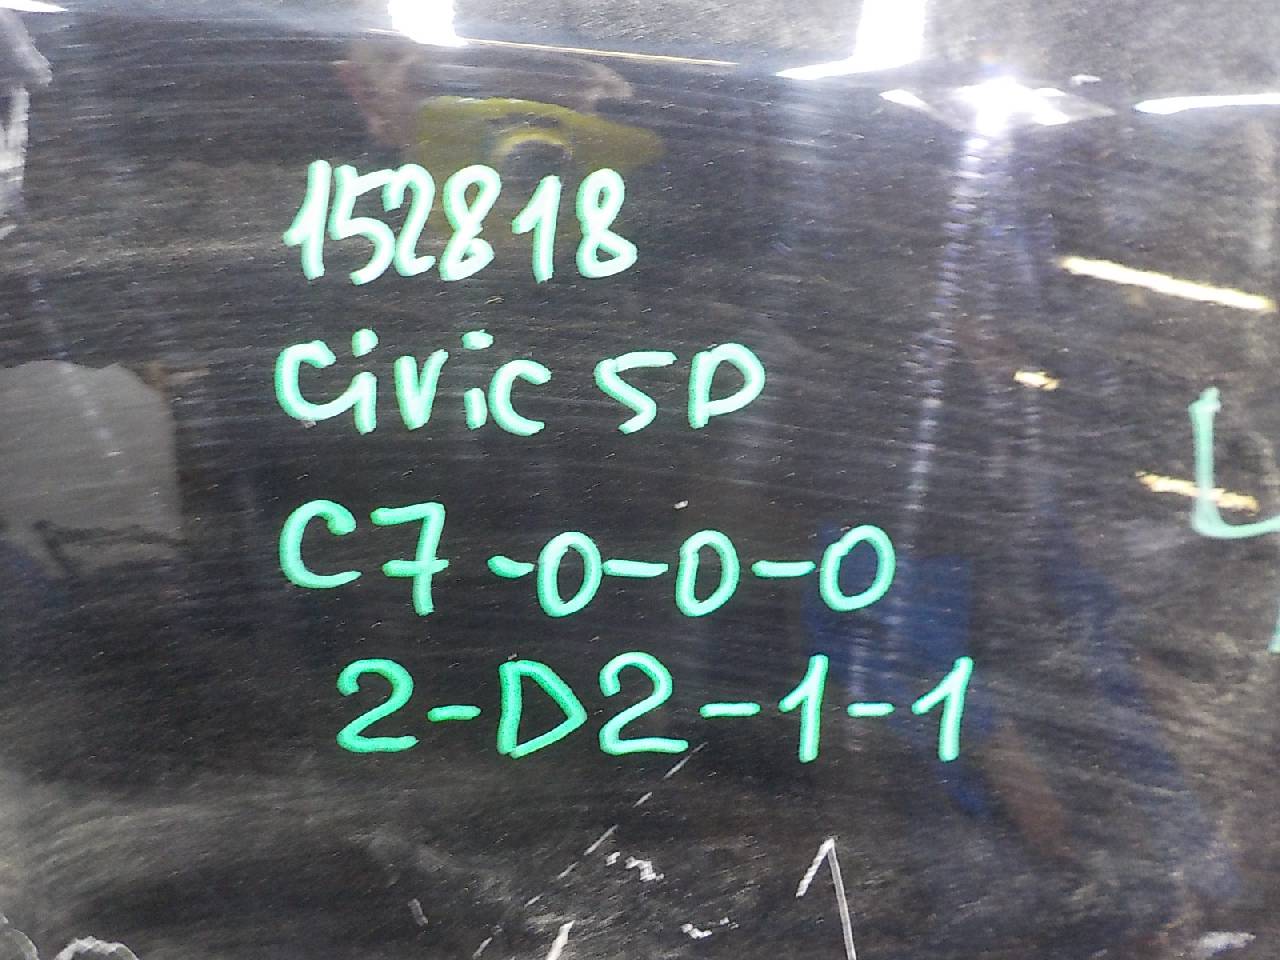 152818
Civic 5D
C7-0-0-0
2-D2-1-1